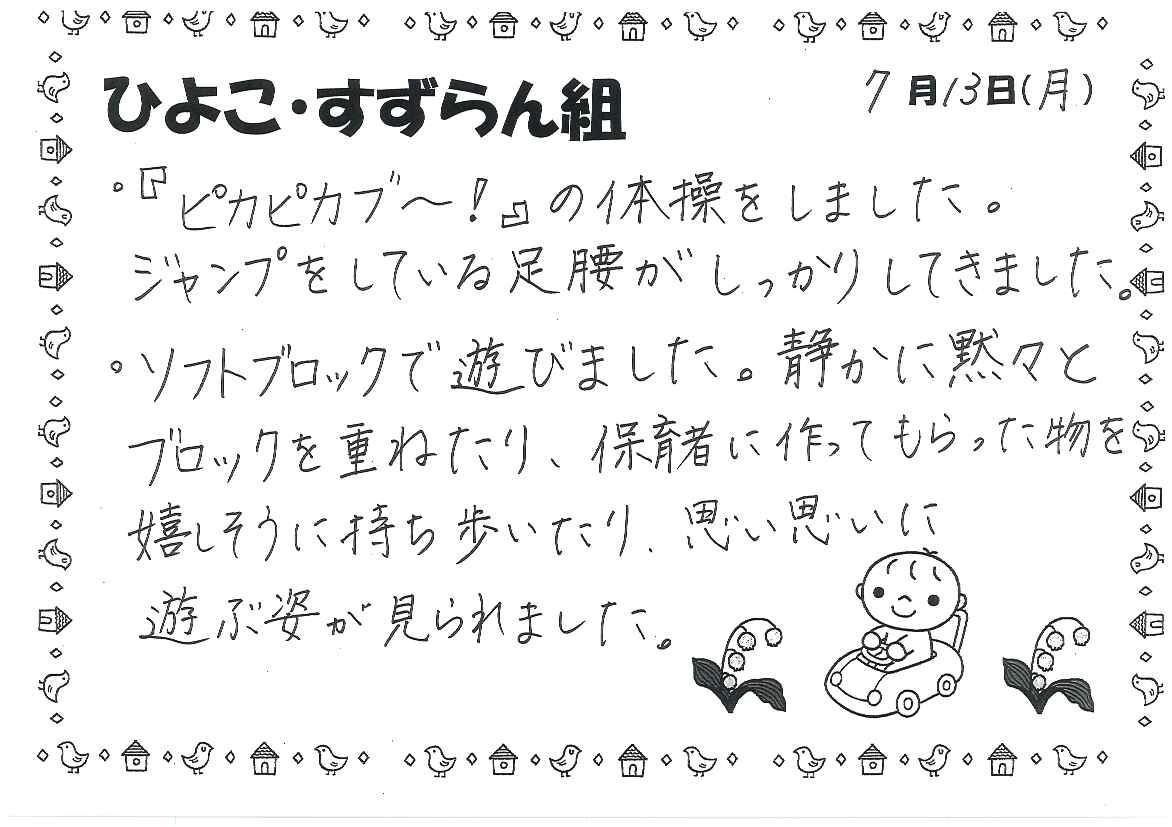 ひよこ・すずらん組
7月13日(月)
・『ピカピカブ〜!』の体操をしました。
ジャンプをしている足腰がしっかりしてきました。
・ソフトブロックで遊びました。静かに黙々と
ブロックを重ねたり、保育者に作ってもらった物を
嬉しそうに持ち歩いたり、思い思いに
遊ぶ姿が見られました。